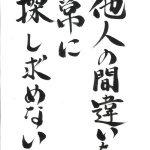 他人の間違いを
常に
探し求めない